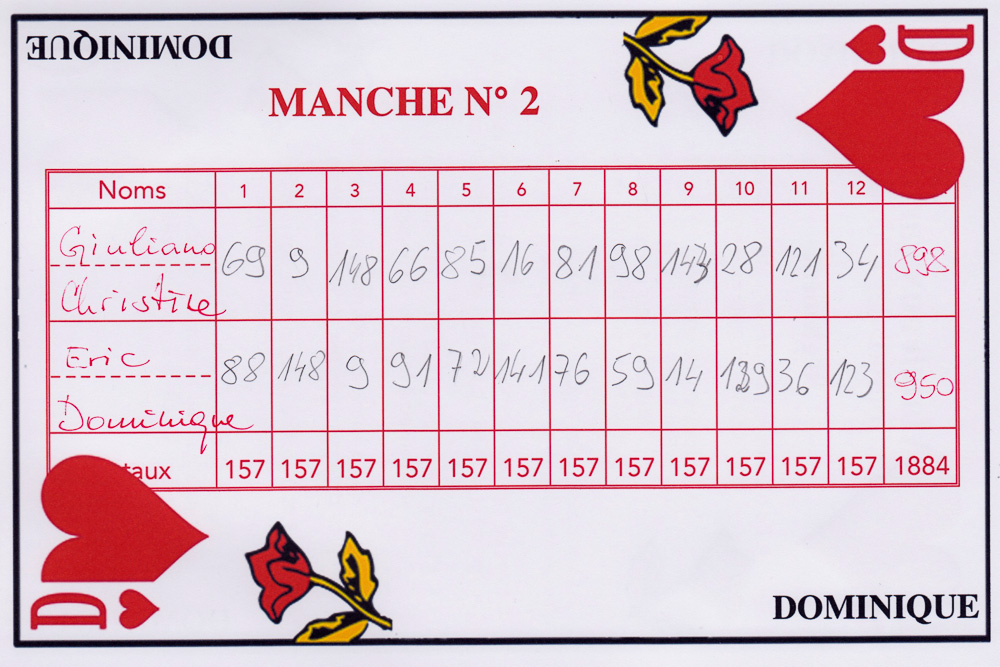 DOMINIQUE
D
MANCHE N° 2
Noms 1 2 3 4 5 6 7 8 9 10 11 12
Giuliano
69 9 148 66 85 16 81 98 143 28 121 34 898
Christine
Eric
88 148 9 91 72 141 76 59 14 129 36 123 950
Dominique
taux 157 157 157 157 157 157 157 157 157 157 157 157 1884
D
DOMINIQUE